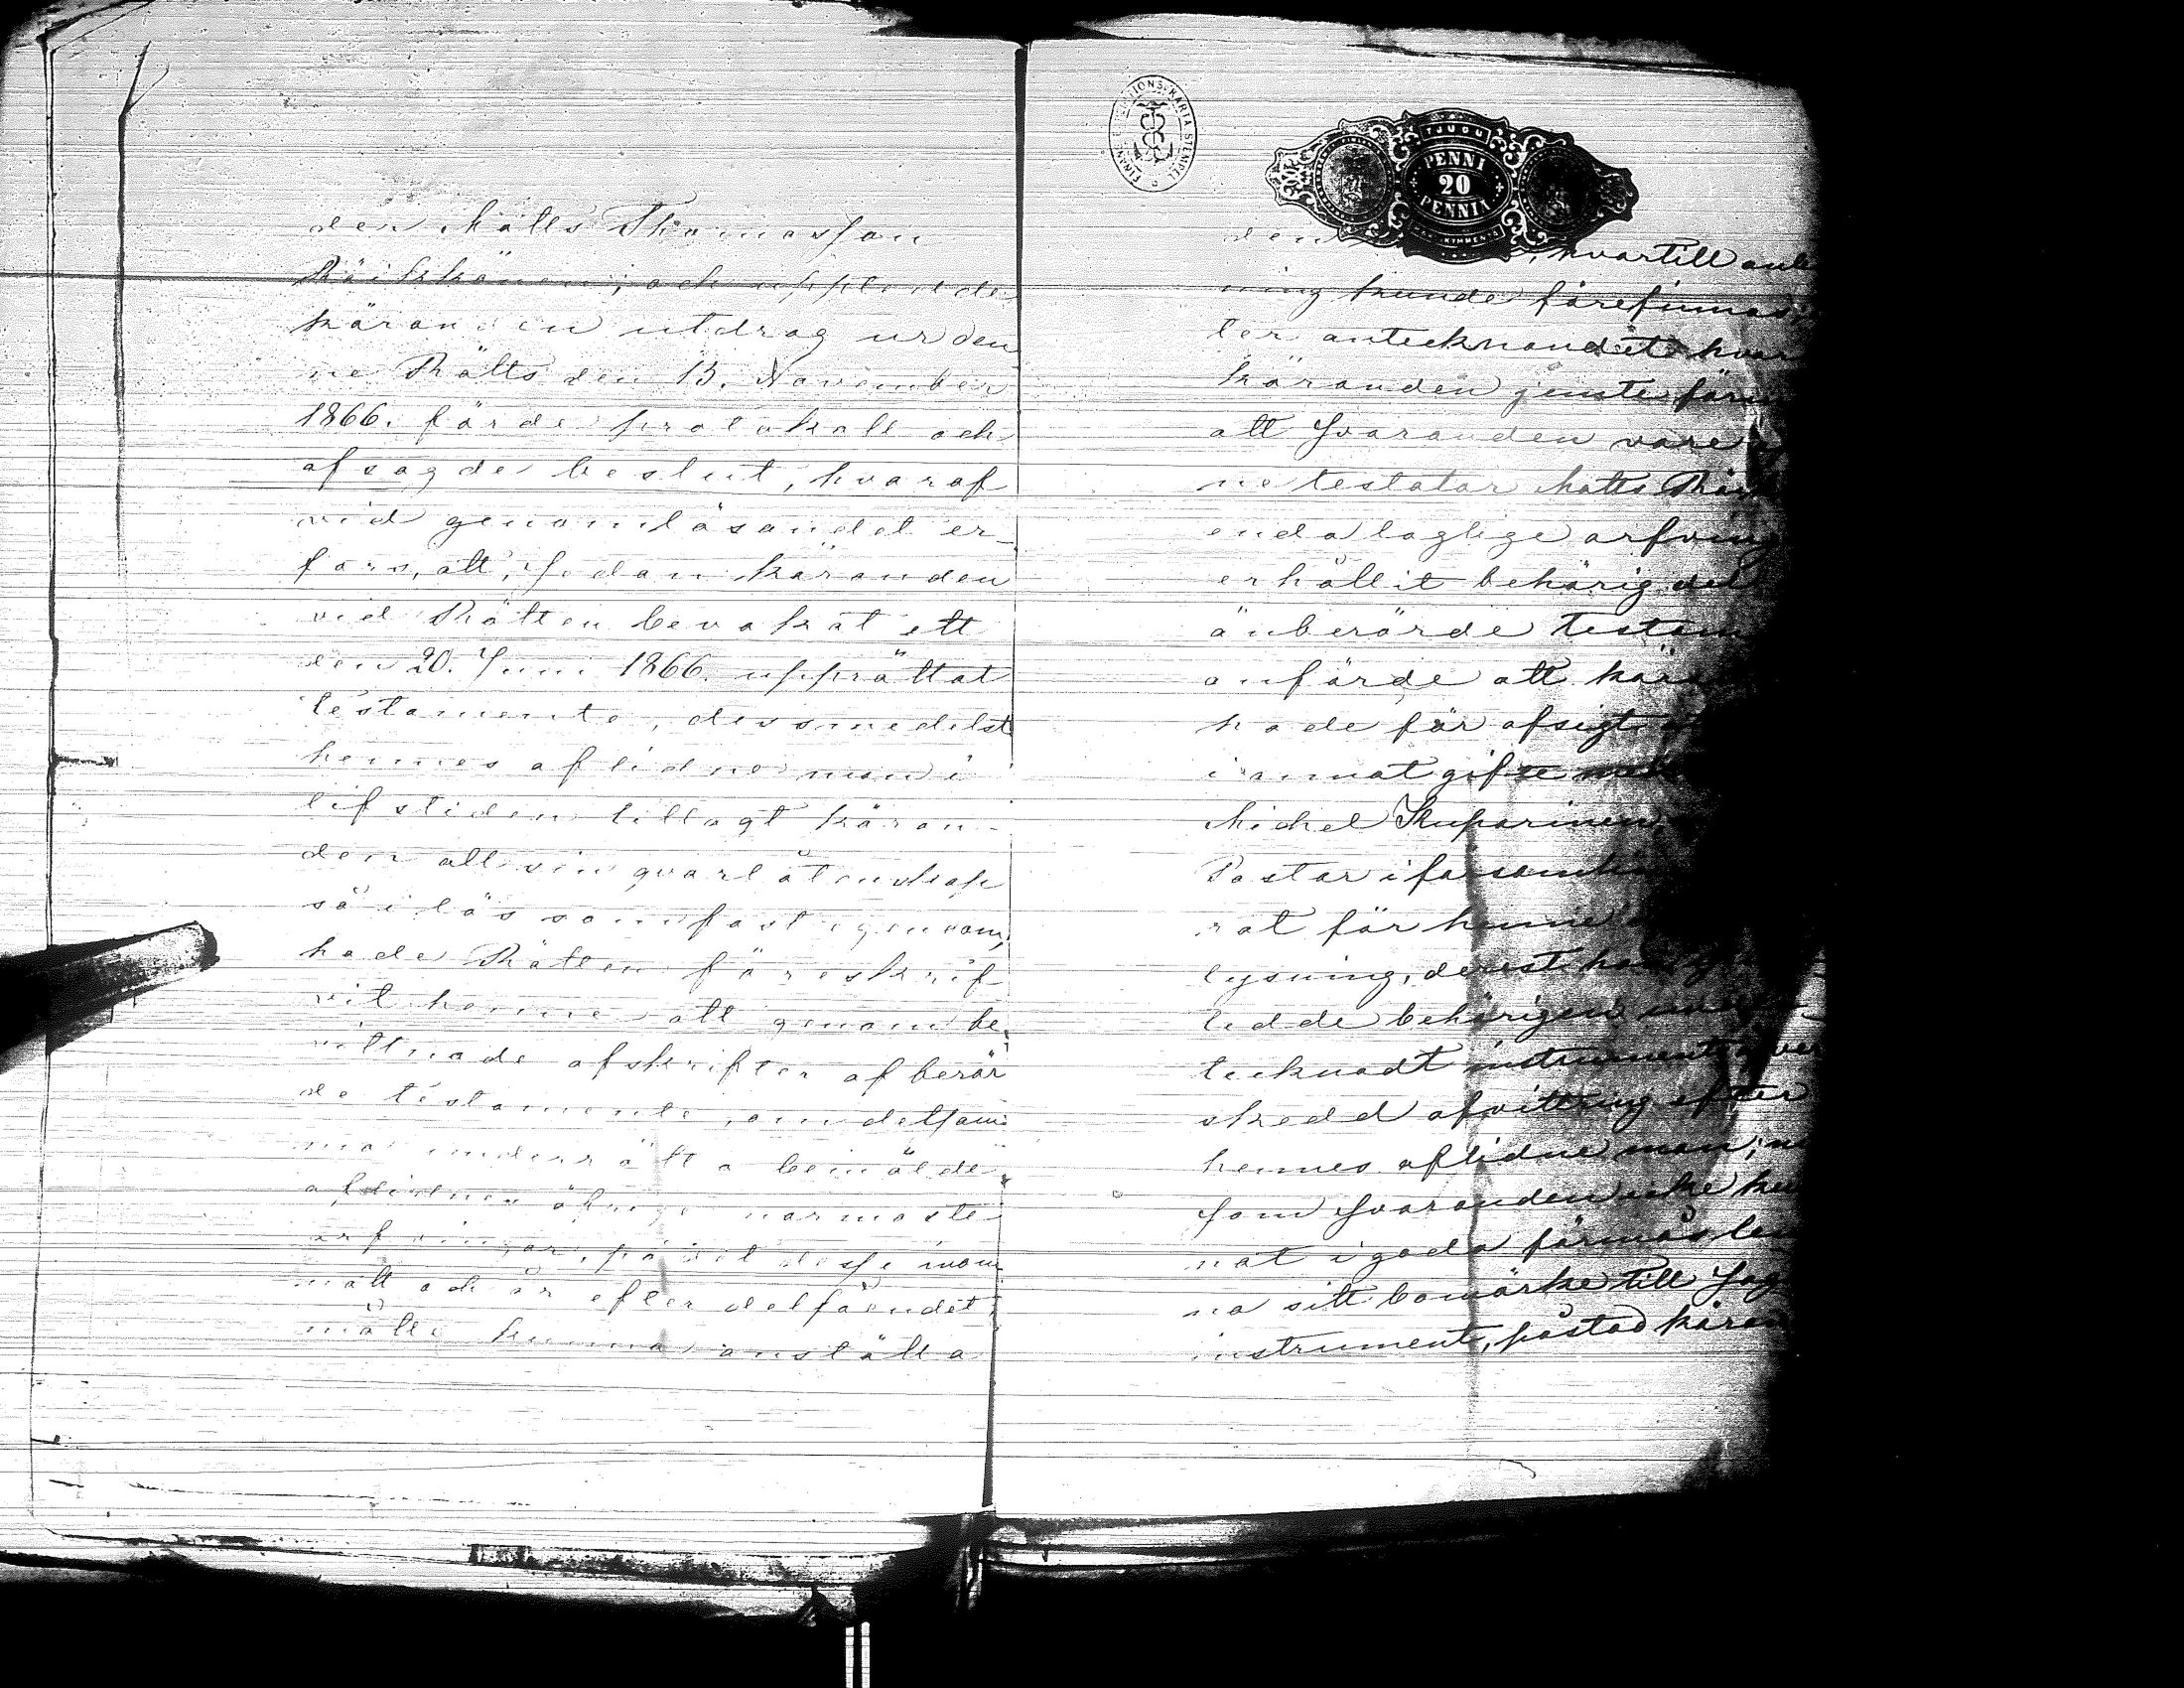 den Matts Thomasson
Räikkönen; och upplende
käranden utdrag ur den
ne Rätts den 13. November
1866. förde protokoll och
afsagde beslut, hvaraf
vid genomläsandet er-
fors, att, sedan käranden
vid Rätten bevakat ett
den 20. Juni 1866. upprättat
testamente, dessmedelst
hennes aflidne man i
lifstiden tillagt käran-
den all sin qvarlåtenskap
så i lös som fast egendom,
hade Rätten föreskrif
vit henne att genom be
vittnade afskrifter af berör
de testamente, om detsam
ma underrätta bemälde
aflidnes öfrige närmaste
arfvingar, på det desse inom
natt och år efter delfåendet,
måtte kunna anställa
FINANS EXPEDITIONS KARTA STEMPEL
TJUGU
PENNI
20
PENNIÄ
KAKSIKYMMENTÄ
den hvartill anled
ning kunde förefinnas;
ler antecknandet hvar
käranden jemte förm
att Svaranden vore
ne testator Matts Räik
enda laglige arfving
erhållit behörig del
anberörde testam
anförde att kära
hade för afsigt
i annat gifte med
Michel Kuparinen,
Pastor i församlin
rat för henne
lysning, derest hon
ledde behörigen under-
tecknadt instrument öfver
skedd afvittring efter
hennes aflidne man; m
som Svaranden icke kun
nat i godo förmås lem
na sitt bomärke till Såg
instrument, påstod käran